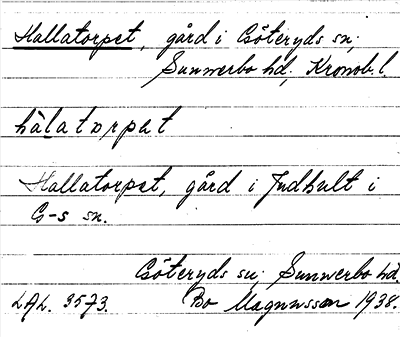 Hallatorpet, gård i Göteryds sn,
Sunnerbo hd, Kronob. l.
hàlatorpet
Hallatorpet, gård i Judhult i
G-s sn.
Göteryds sn, Sunnerbo hd.
LAL. 3573. Bo Magnusson 1938.